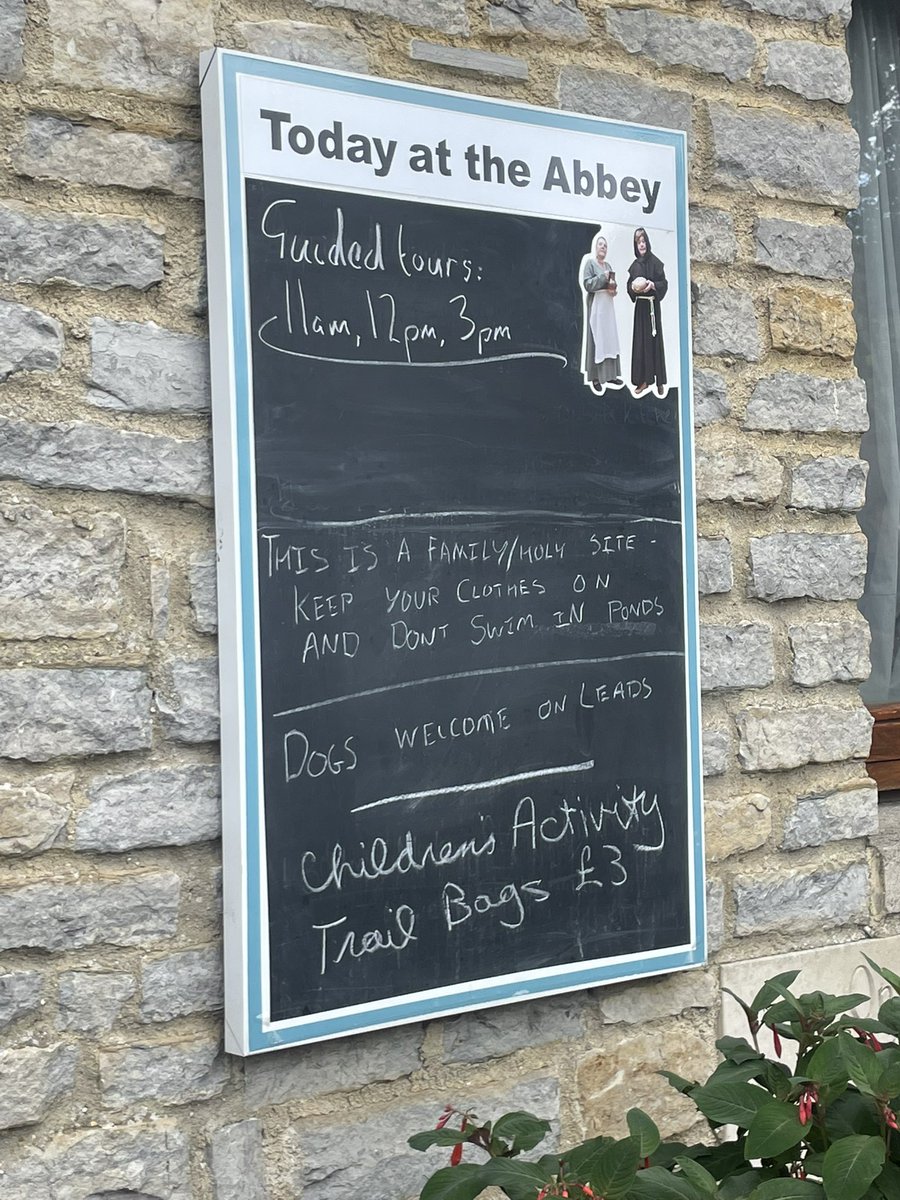 Today at the Abbey
Guided tours:
11am, 12pm, 3pm
THIS IS A FAMILY/HOLY SITE -
KEEP YOUR CLOTHES ON
AND DONT SWIM IN PONDS
DOGS WELCOME ON LEADS
Children's Activity
Trail Bags £3